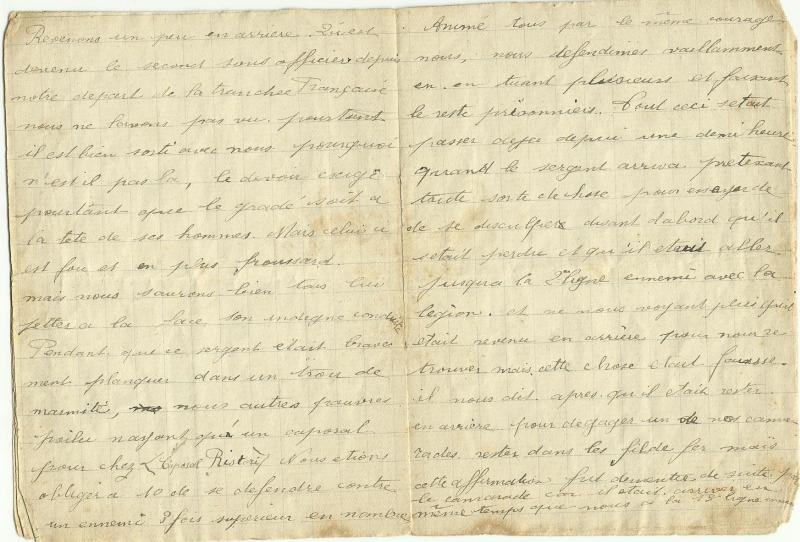 Revenons un peu en arrière. Qu'est
devenu le second sous officier depuis
notre depart de la tranchée Française
nous ne lavons pas vu. pourtant
il est bien sorti avec nous pourquoi
n'est il pas la, le devoir exige
pourtant que le gradé soit a
la tete de ses hommes. Mais celui ci
est fou et en plus froussard.
mais nous saurons bien tous lui
jetter a la face son indigne conduite
Pendant que ce sergent etait brave
ment planquer dans un trou de
marmite, nous autres pauvres
poilu nayant qu'un caporal
pour chez (Caporal Ristori) Nous etions
obliger a 10 de se defendre contre
un ennemi 3 fois superieur en nombre
Animé tous par le même courage
nous, nous defendimes vaillamment
en. en tuant plusieurs et faisant
le reste prisonniers. Tout ceci setait
passer deja depuis une demi heure
quand le sergent arriva pretexant
toute sorte de chose pour essayer de
de se disculper disant dabord qu'il
setait perdu et qu'il etait aller
jusqua la 2me ligne ennemi avec la
legion. et ne nous voyant plus qu'il
etait revenu en arrière pour nous re
trouver mais cette chose etait fausse.
il nous dit apres qu'il etait rester
en arrière pour degager un de nos cama
rades rester dans les fil de fer mais
cette affirmation fut dementie de suite par
le camarade car il etait arriver en
même temps que nous a la ligne